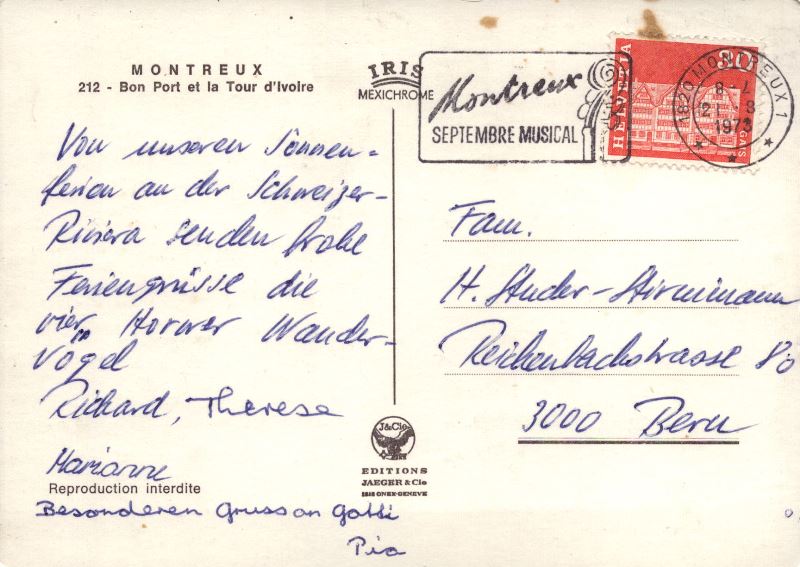 MONTREUX
212 - Bon Port et la Tour d'Ivoire
IRIS
MEXICHROME
Von unseren Sonnen-
ferien an der Schweizer-
Riviera senden frohe
Feriengrüsse die
vier Horwer Wander-
vögel
Richard, Therese
Marianne
Reproduction interdite
Besonderen Gruss an Gotti
Pia
J&Cie
EDITIONS
JAEGER & Cie
1213 ONEX-GENEVE
Montreux
SEPTEMBRE MUSICAL
HELVETIA
30
GAIS
1820 MONTREUX 1
1973
Fam.
H. Studer-Stirnimann
Reichenbachstrasse 80
3000 Bern